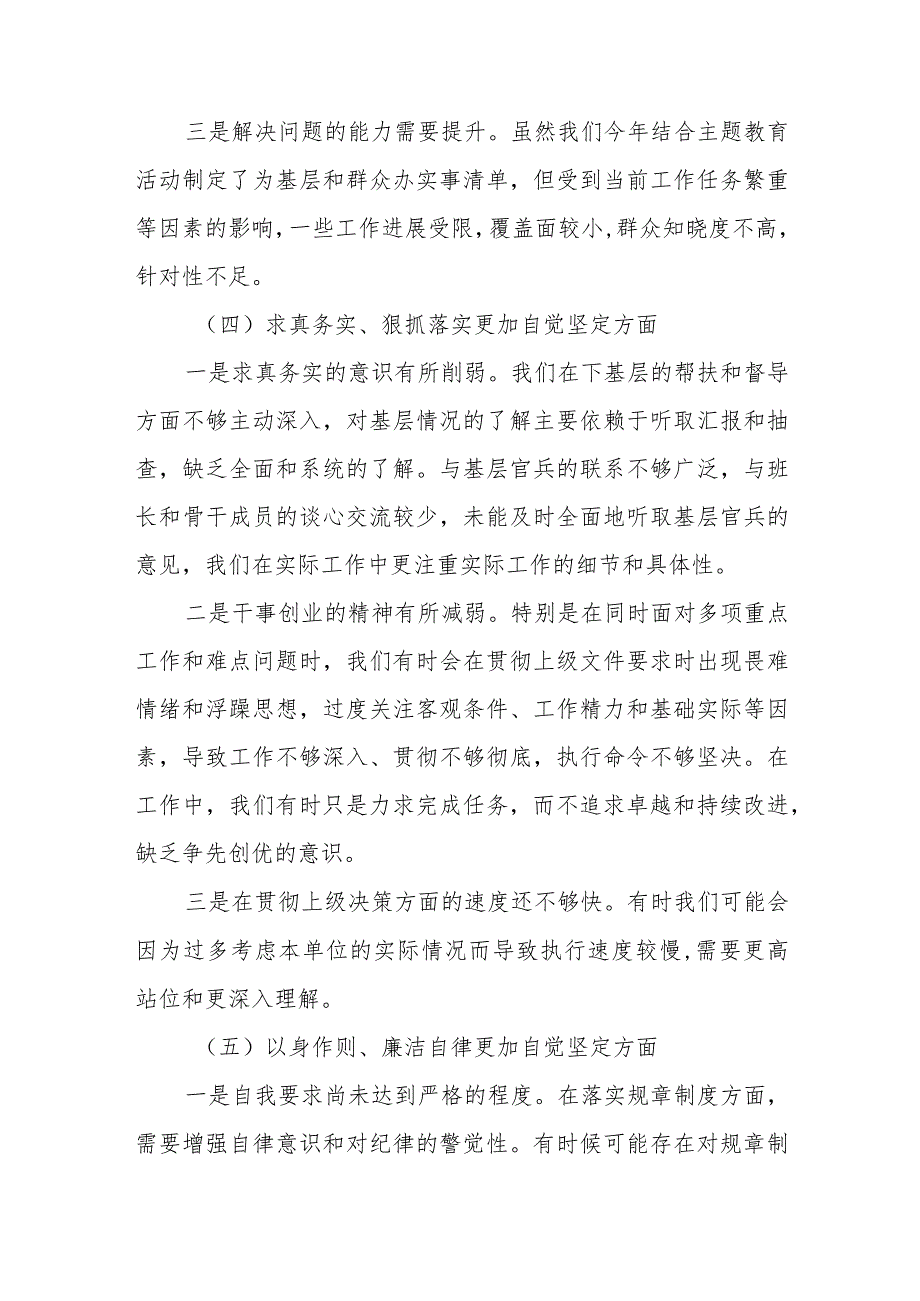 三是解决问题的能力需要提升。虽然我们今年结合主题教育
活动制定了为基层和群众办实事清单，但受到当前工作任务繁重
等因素的影响,一些工作进展受限,覆盖面较小,群众知晓度不高，
针对性不足。
（四）求真务实、狠抓落实更加自觉坚定方面
一是求真务实的意识有所削弱。我们在下基层的帮扶和督导
方面不够主动深入，对基层情况的了解主要依赖于听取汇报和抽
查，缺乏全面和系统的了解。与基层官兵的联系不够广泛，与班
长和骨干成员的谈心交流较少，未能及时全面地听取基层官兵的
意见，我们在实际工作中更注重实际工作的细节和具体性。
二是干事创业的精神有所减弱。特别是在同时面对多项重点
工作和难点问题时，我们有时会在贯彻上级文件要求时出现畏难
情绪和浮躁思想，过度关注客观条件、工作精力和基础实际等因
素，导致工作不够深入、贯彻不够彻底，执行命令不够坚决。在
工作中，我们有时只是力求完成任务，而不追求卓越和持续改进，
缺乏争先创优的意识。
三是在贯彻上级决策方面的速度还不够快。有时我们可能会
因为过多考虑本单位的实际情况而导致执行速度较慢,需要更高
站位和更深入理解。
（五）以身作则、廉洁自律更加自觉坚定方面
一是自我要求尚未达到严格的程度。在落实规章制度方面，
需要增强自律意识和对纪律的警觉性。有时候可能存在对规章制